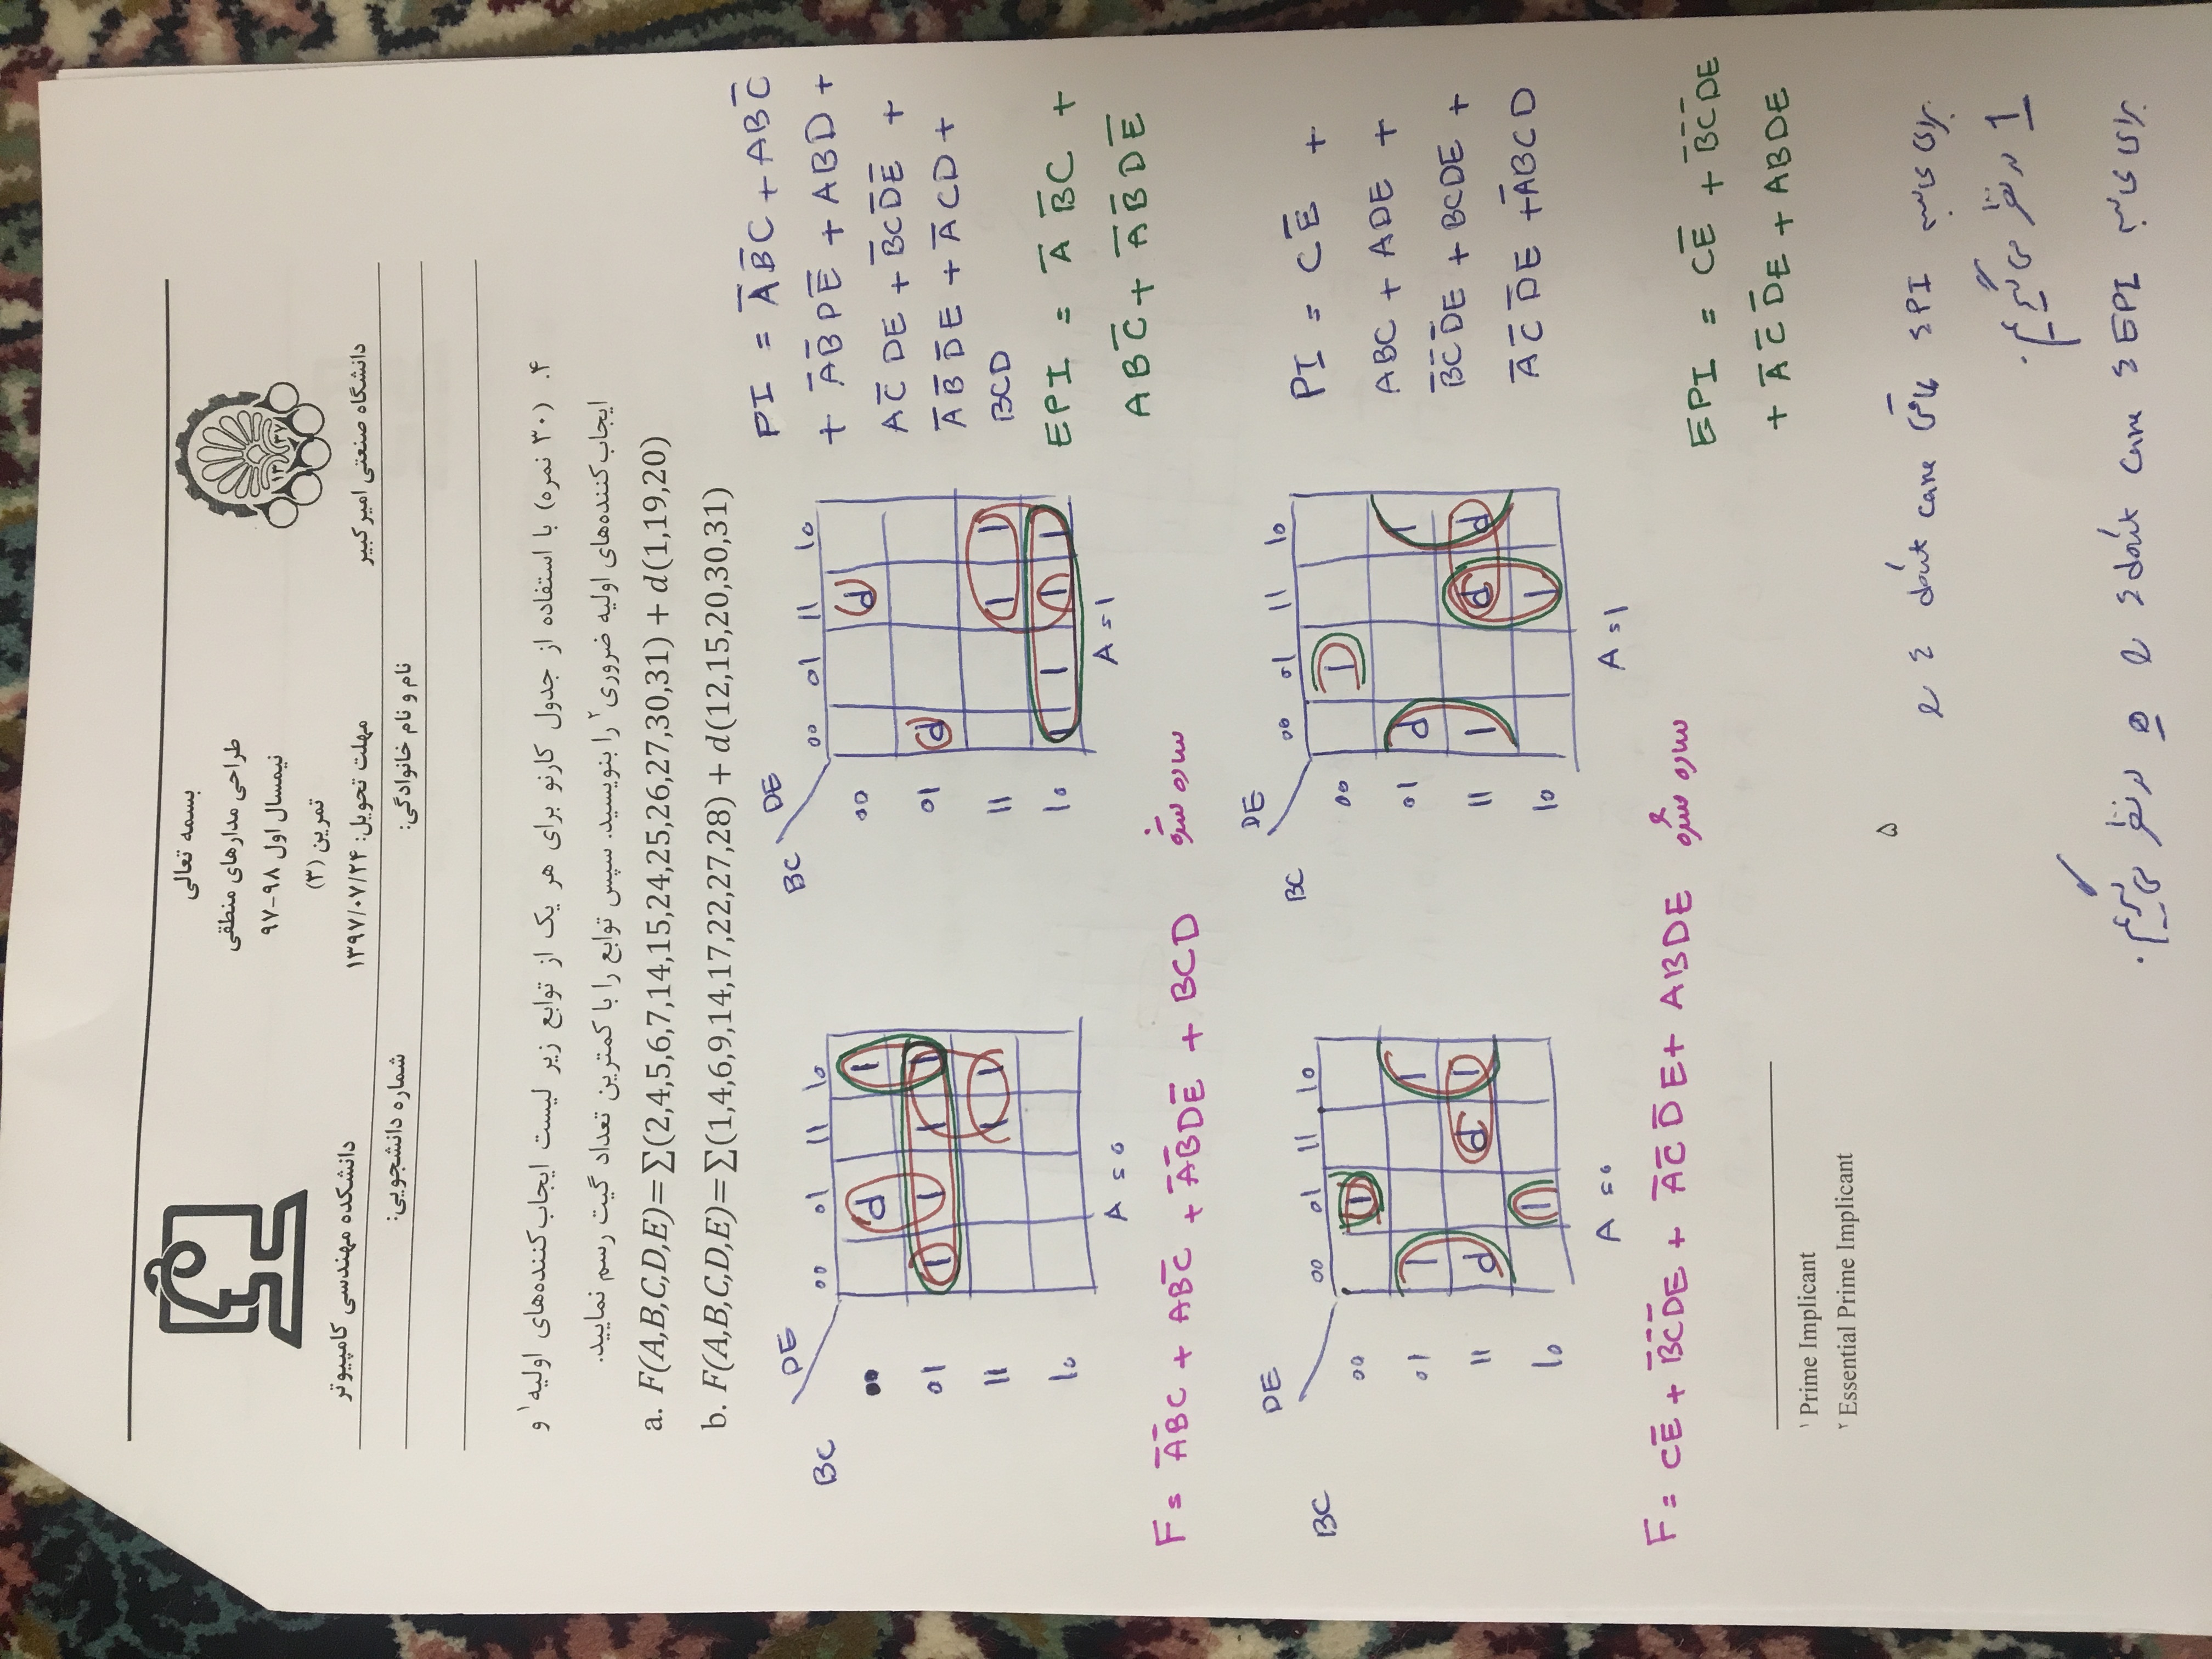 بسمه تعالی
طراحی مدارهای منطقی
نیمسال اول ۹۸-۹۷
تمرین (۳)
مهلت تحویل: ۱۳۹۷/۰۷/۲۴
۱۳ ۳۷
دانشگاه صنعتی امیرکبیر
دانشکده مهندسی کامپیوتر
نام و نام خانوادگی:
شماره دانشجویی:
۴. (۳۰ نمره) با استفاده از جدول کارنو برای هر یک از توابع زیر لیست ایجاب‌کننده‌های اولیه۱ و
ایجاب‌کننده‌های اولیه ضروری۲ را بنویسید. سپس توابع را با کمترین تعداد گیت رسم نمایید.
a. F(A,B,C,D,E)=∑(2,4,5,6,7,14,15,24,25,26,27,30,31) + d(1,19,20)
b. F(A,B,C,D,E)=∑(1,4,6,9,14,17,22,27,28) + d(12,15,20,30,31)
BC DE
00 01 11 10
00 d 1
01 1 1 1 1
11 1 1
10
A = 0
BC DE
00 01 11 10
00 d
01 d
11 1 1
10 1 1 1 1
A = 1
PI = A̅B̅C + ABC̅
+ A̅B̅DE̅ + ABD +
AC̅DE + B̅CD̅E̅ +
A̅B̅D̅E + A̅CD +
BCD
EPI = A̅B̅C +
ABC̅ + A̅B̅DE̅
F = A̅B̅C + ABC̅ + A̅B̅DE̅ + BCD ساده شده
BC DE
00 01 11 10
00 1
01 1 1
11 d d 1
10 1
A = 0
BC DE
00 01 11 10
00 1
01 d 1
11 1 d d
10 1
A = 1
PI = CE̅ +
ABC + ADE +
B̅C̅D̅E + BCDE +
A̅C̅D̅E + A̅BCD
F = CE̅ + B̅C̅D̅E + A̅C̅D̅E + ABDE ساده شده
EPI = CE̅ + B̅C̅D̅E
+ A̅C̅D̅E + ABDE
۱ Prime Implicant
۲ Essential Prime Implicant
۵
برای محاسبه PI ها don't care ها
1 در نظر می‌گیریم.
برای محاسبه EPI ها don't care ها 0 در نظر می‌گیریم.